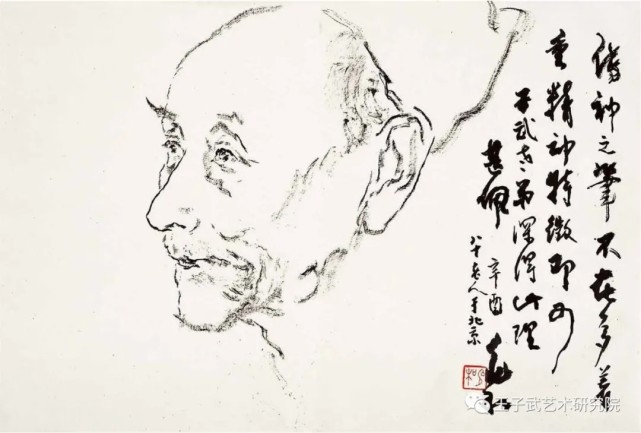 傳神之筆不在多著
重精神特徵即可
子武老弟深得此理
甚佩
辛酉
八十老人于北京
王子武艺术研究院